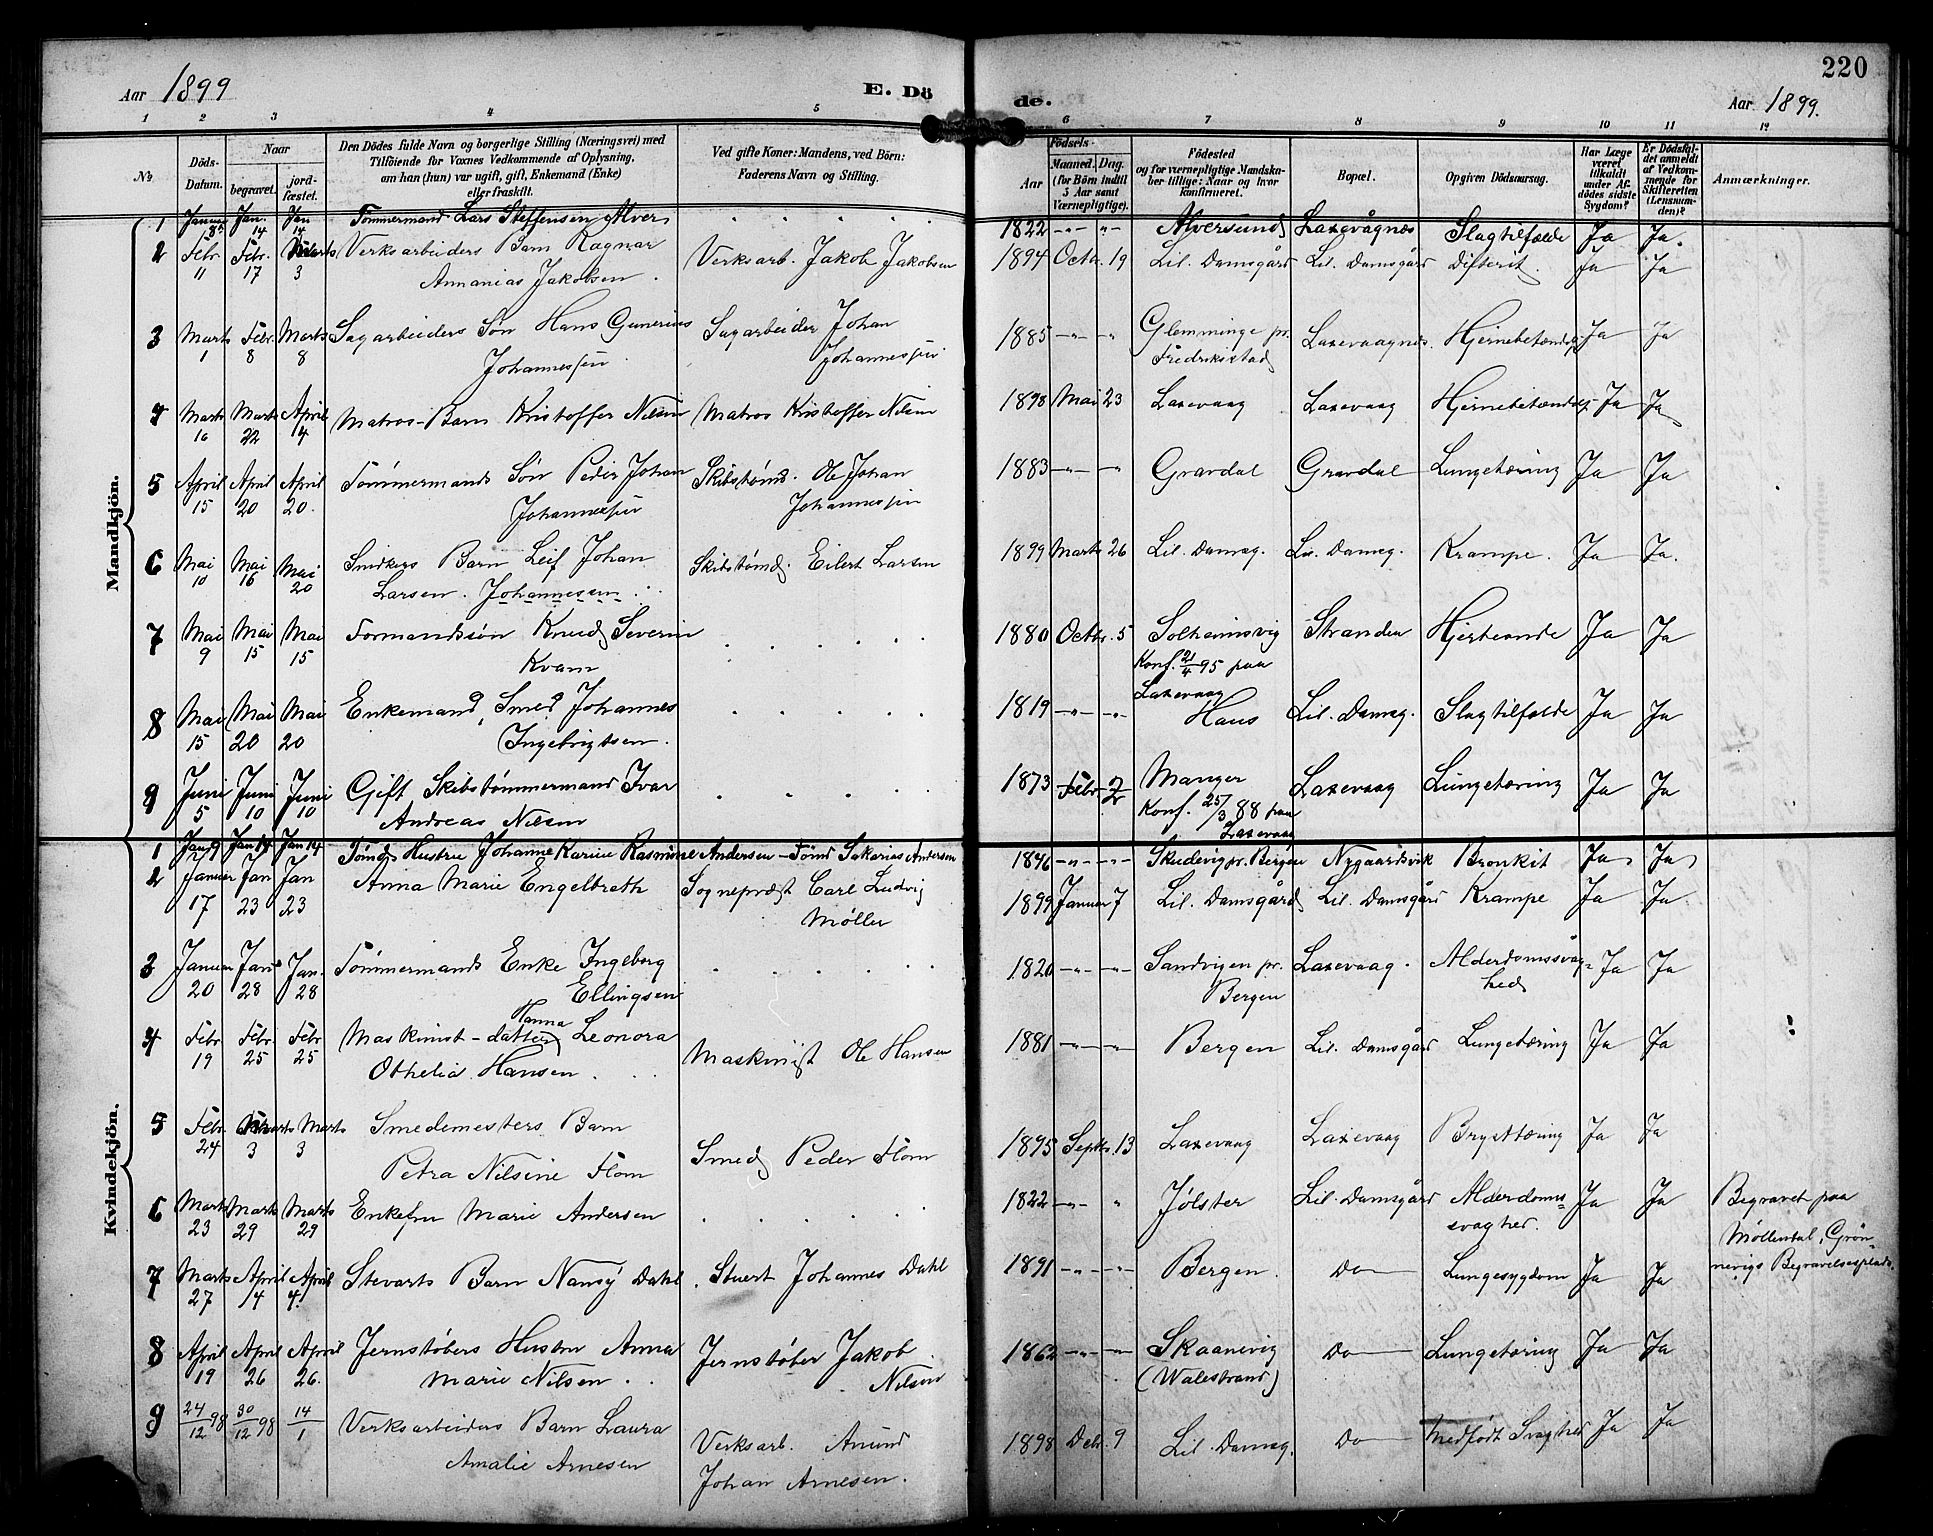 220
Aar 1899 E. Dö
de. Aar 1899.
1 2 3 4 5
6 7 8 9 10 11 12
No
Döds-Datum.
Naar
begravet.
jord-fæstet.
Den Dödes fulde Navn og borgerlige Stilling (Næringsvei) med
Tilföiende for Voxnes Vedkommende af Oplysning,
om han (hun) var ugift, gift, Enkemand (Enke)
eller fraskilt.
Ved gifte Koner: Mandens, ved Börn:
Faderens Navn og Stilling.
Födsels-
Aar
Maaned. Dag.
(for Börn indtil
5 Aar samt
Værnepligtige).
Födested
og for værnepligtige Mandskaber tillige: Naar og hvor
konfirmeret.
Bopæl.
Opgiven Dödsaarsag.
Har Læge
været
tilkaldt
under Afdödes sidste
Sygdom?
Er Dödsfaldet anmeldt
af Vedkommende for
Skifteretten
(Lensmanden)?
Anmærkninger.
Mandkjön.
1 Januar 8 Jan. 14 Jan 14 Tømmermand Lars Steffensen Alver 1822 Alversund Laxevågnes Slagtilfælde Ja Ja.
2 Febr. 11 Febr. 17 Marts 3 Verksarbeiders Barn Ragnar
Annanias Jakobsen. Verksarb. Jakob Jakobsen 1894 Octo. 19 Lil. Damsgård Lil. Damsgård Difterit. Ja Ja
3 Marts 1 Febr. 8 Marts 8 Sagarbeiders Søn Hans Gunerius
Johannessen Sagarbeider Johan
Johannessen 1885 Glemminge pr.
Fredrikstad Laxevaagnes. Hjernebetændelse Ja Ja
4 Marts 16 Marts 22 April 4 Matros-Barn Kristoffer Nilsen Matros Kristoffer Nilsen 1898 Mai 23 Laxevaag Laxevaag Hjernebetændels. Ja Ja
5 April 15 April 20 April 20. Tømmermands Søn Peder Johan
Johannessen Skibstømd. Ole Johan
Johannessen 1883 Gravdal Gravdal Lungetæring Ja Ja
6 Mai 10 Mai 16 Mai 20 Snedkers Barn Leif Johan
Larsen. Johannessen Skibstømd. Eilert Larsen 1899 Marts 26 Lil. Damsg. Lil. Damsg. Krampe. Ja Ja.
7 Mai 9 Mai 15 Mai 15 Formandssøn Knud Severin
Kvam 1880 Octbr. 5 Solheimsvig
Konf. 21/4 95 paa
Laxevaag Stranden Hjerteonde Ja Ja
8 Mai 15 Mai 20 Mai 20 Enkemand, Smed Johannes
Ingebrigtsen. 1819 Haus Lil. Damsg. Slagtilfælde Ja Ja
9 Juni 5 Juni 10 Juni 10 Gift Skibstømmermand Ivar
Andreas Nilsen 1873 Febr. 2 Manger
Konf. 25/3 88 paa
Laxevaag Laxevaag Lungetæring Ja Ja
Kvindekjön.
1 Jan 9 Jan 14 Jan 14 Tømds Hustru Johanne Karine Rasmine Andersen - Tømd Sakarias Andersen 1846 Skudevig pr. Bergen Nygaardsvik Bronkit Ja Ja
2 Januar 17 Jan 23 Jan 23 Anna Marie Engelbreth Sogneprest Carl Ludvig
Møller 1899 Januar 7 Lil. Damsgård Lil. Damsgård Krampe Ja Ja.
3 Januar 20 Jan 28 Jan. 28 Tømmermands Enke Ingeborg
Ellingsen 1820 Sandvigen pr.
Bergen Laxevaag. Alderdomssvag-
hed Ja Ja
4 Febr 19 Febr. 25 Febr 25 Maskinist-datter Hanna Leonora
Othelia Hansen Maskinist Ole Hansen 1881 Bergen Lil. Damsgård Lungetæring Ja Ja
5 Febr. 24 Marts 3 Marts 3 Smedemesters Barn
Petra Nilsine Flom Smed Peder Flom 1895 Septbr. 13 Laxevaag Laxevaag Brysttæring Ja Ja
6 Marts 23 Marts 29 Marts 29 Enkefru Marie Andersen 1822 Jølster Lil. Damsgård Alderdoms=
svaghed. Ja Ja Begravet paa
Møllendal, Grøn-
nevigs Begravelsesplads.
7 Marts 27 April 4 April 4. Stevarts Barn Nansy Dahl. Stuert Johannes Dahl 1891 Bergen Do Lungesygdom Ja Ja
8 April 19 April 26 April 26. Jernstøbers Hustru Anna
Marie Nilsen. Jernstøber Jakob
Nilsen 1862 Skaanevig
(Walestrand) Do Lungetæring Ja Ja
9 24/12 98 30/12 98 14/1 Verksarbeiders Barn Laura
Amalie Arnesen Verksarb. Anund
Johan Arnesen. 1898 Debr. 9 Lil. Damsg. Do Medfødt Svaghed Ja Ja